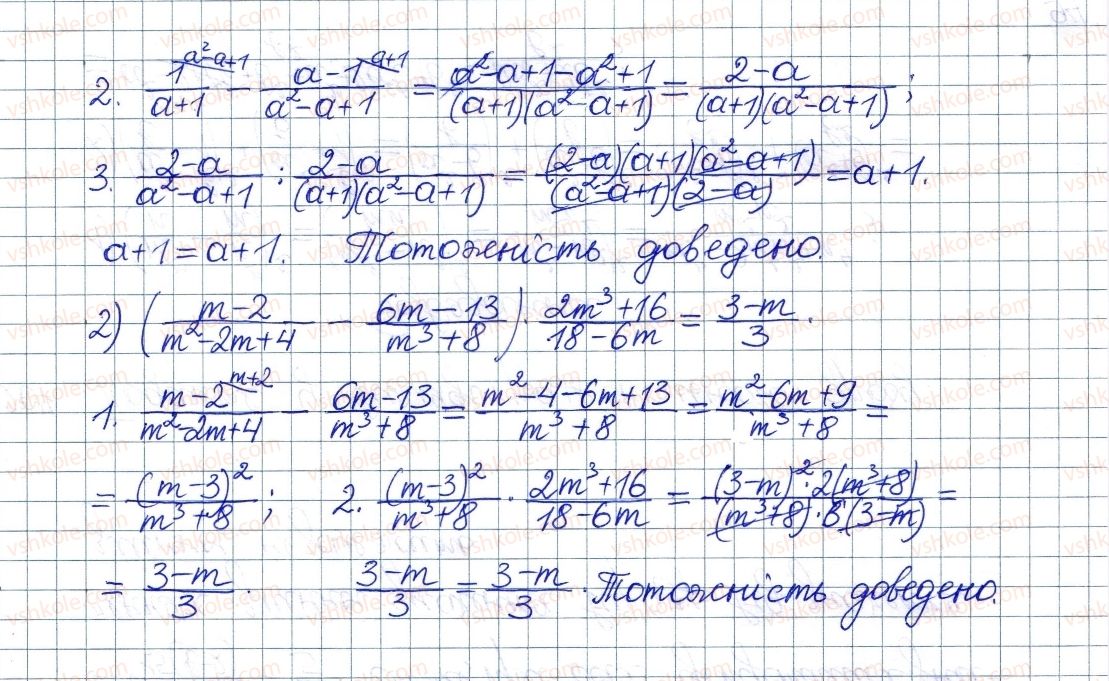 2. \frac{1^{\backslash a^2-a+1}}{a+1} - \frac{a-1^{\backslash a+1}}{a^2-a+1} = \frac{a^2-a+1-a^2+1}{(a+1)(a^2-a+1)} = \frac{2-a}{(a+1)(a^2-a+1)};
3. \frac{2-a}{a^2-a+1} : \frac{2-a}{(a+1)(a^2-a+1)} = \frac{(2-a)(a+1)(a^2-a+1)}{(a^2-a+1)(2-a)} = a+1.
a+1=a+1. Тотожність доведено.
2) (\frac{m-2}{m^2-2m+4} - \frac{6m-13}{m^3+8}) · \frac{2m^3+16}{18-6m} = \frac{3-m}{3}.
1. \frac{m-2^{\backslash m+2}}{m^2-2m+4} - \frac{6m-13}{m^3+8} = \frac{m^2-4-6m+13}{m^3+8} = \frac{m^2-6m+9}{m^3+8} =
= \frac{(m-3)^2}{m^3+8}; 2. \frac{(m-3)^2}{m^3+8} · \frac{2m^3+16}{18-6m} = \frac{(3-m)^2·2(m^3+8)}{(m^3+8)·6(3-m)} =
= \frac{3-m}{3}. \frac{3-m}{3} = \frac{3-m}{3}. Тотожність доведено.